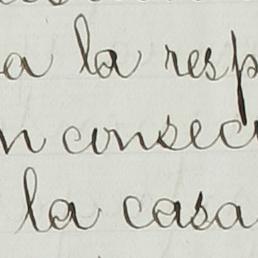 a la resp
n consec
la casa